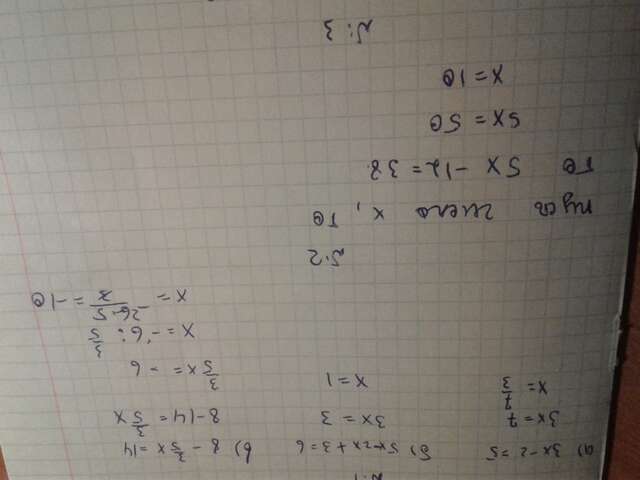 № 1
а) 3x - 2 = 5
3x = 7
x = 7/3
б) 5x - 2x + 3 = 6
3x = 3
x = 1
в) 8 - 3/5 x = 14
8 - 14 = 3/5 x
3/5 x = - 6
x = - 6 : 3/5
x = - 26 · 5 / 3 = -10
№ 2
пусть число x, то
то 5x - 12 = 38.
5x = 50
x = 10
№ 3